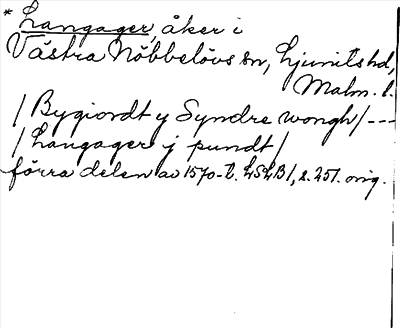 * Langager, åker i
Västra Nöbbelövs sn, Ljunits hd,
Malm. l.
/ Bygiordt y Syndre wongh / ---
/ Langager j pundt /
förra delen av 1570-t. LSLB 1, s. 251. orig.